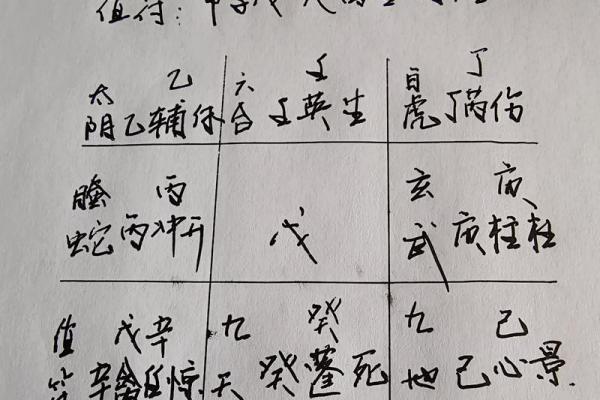 值符：甲子戊
太 乙 六 壬 白 丁
阴 乙辅休 合 壬英生 虎 丁芮伤
螣 丙 玄 庚
蛇 丙冲开 戊 武 庚柱杜
值 戊辛 九 癸 九 己
符 辛禽任惊 天 癸蓬死 地 己心景